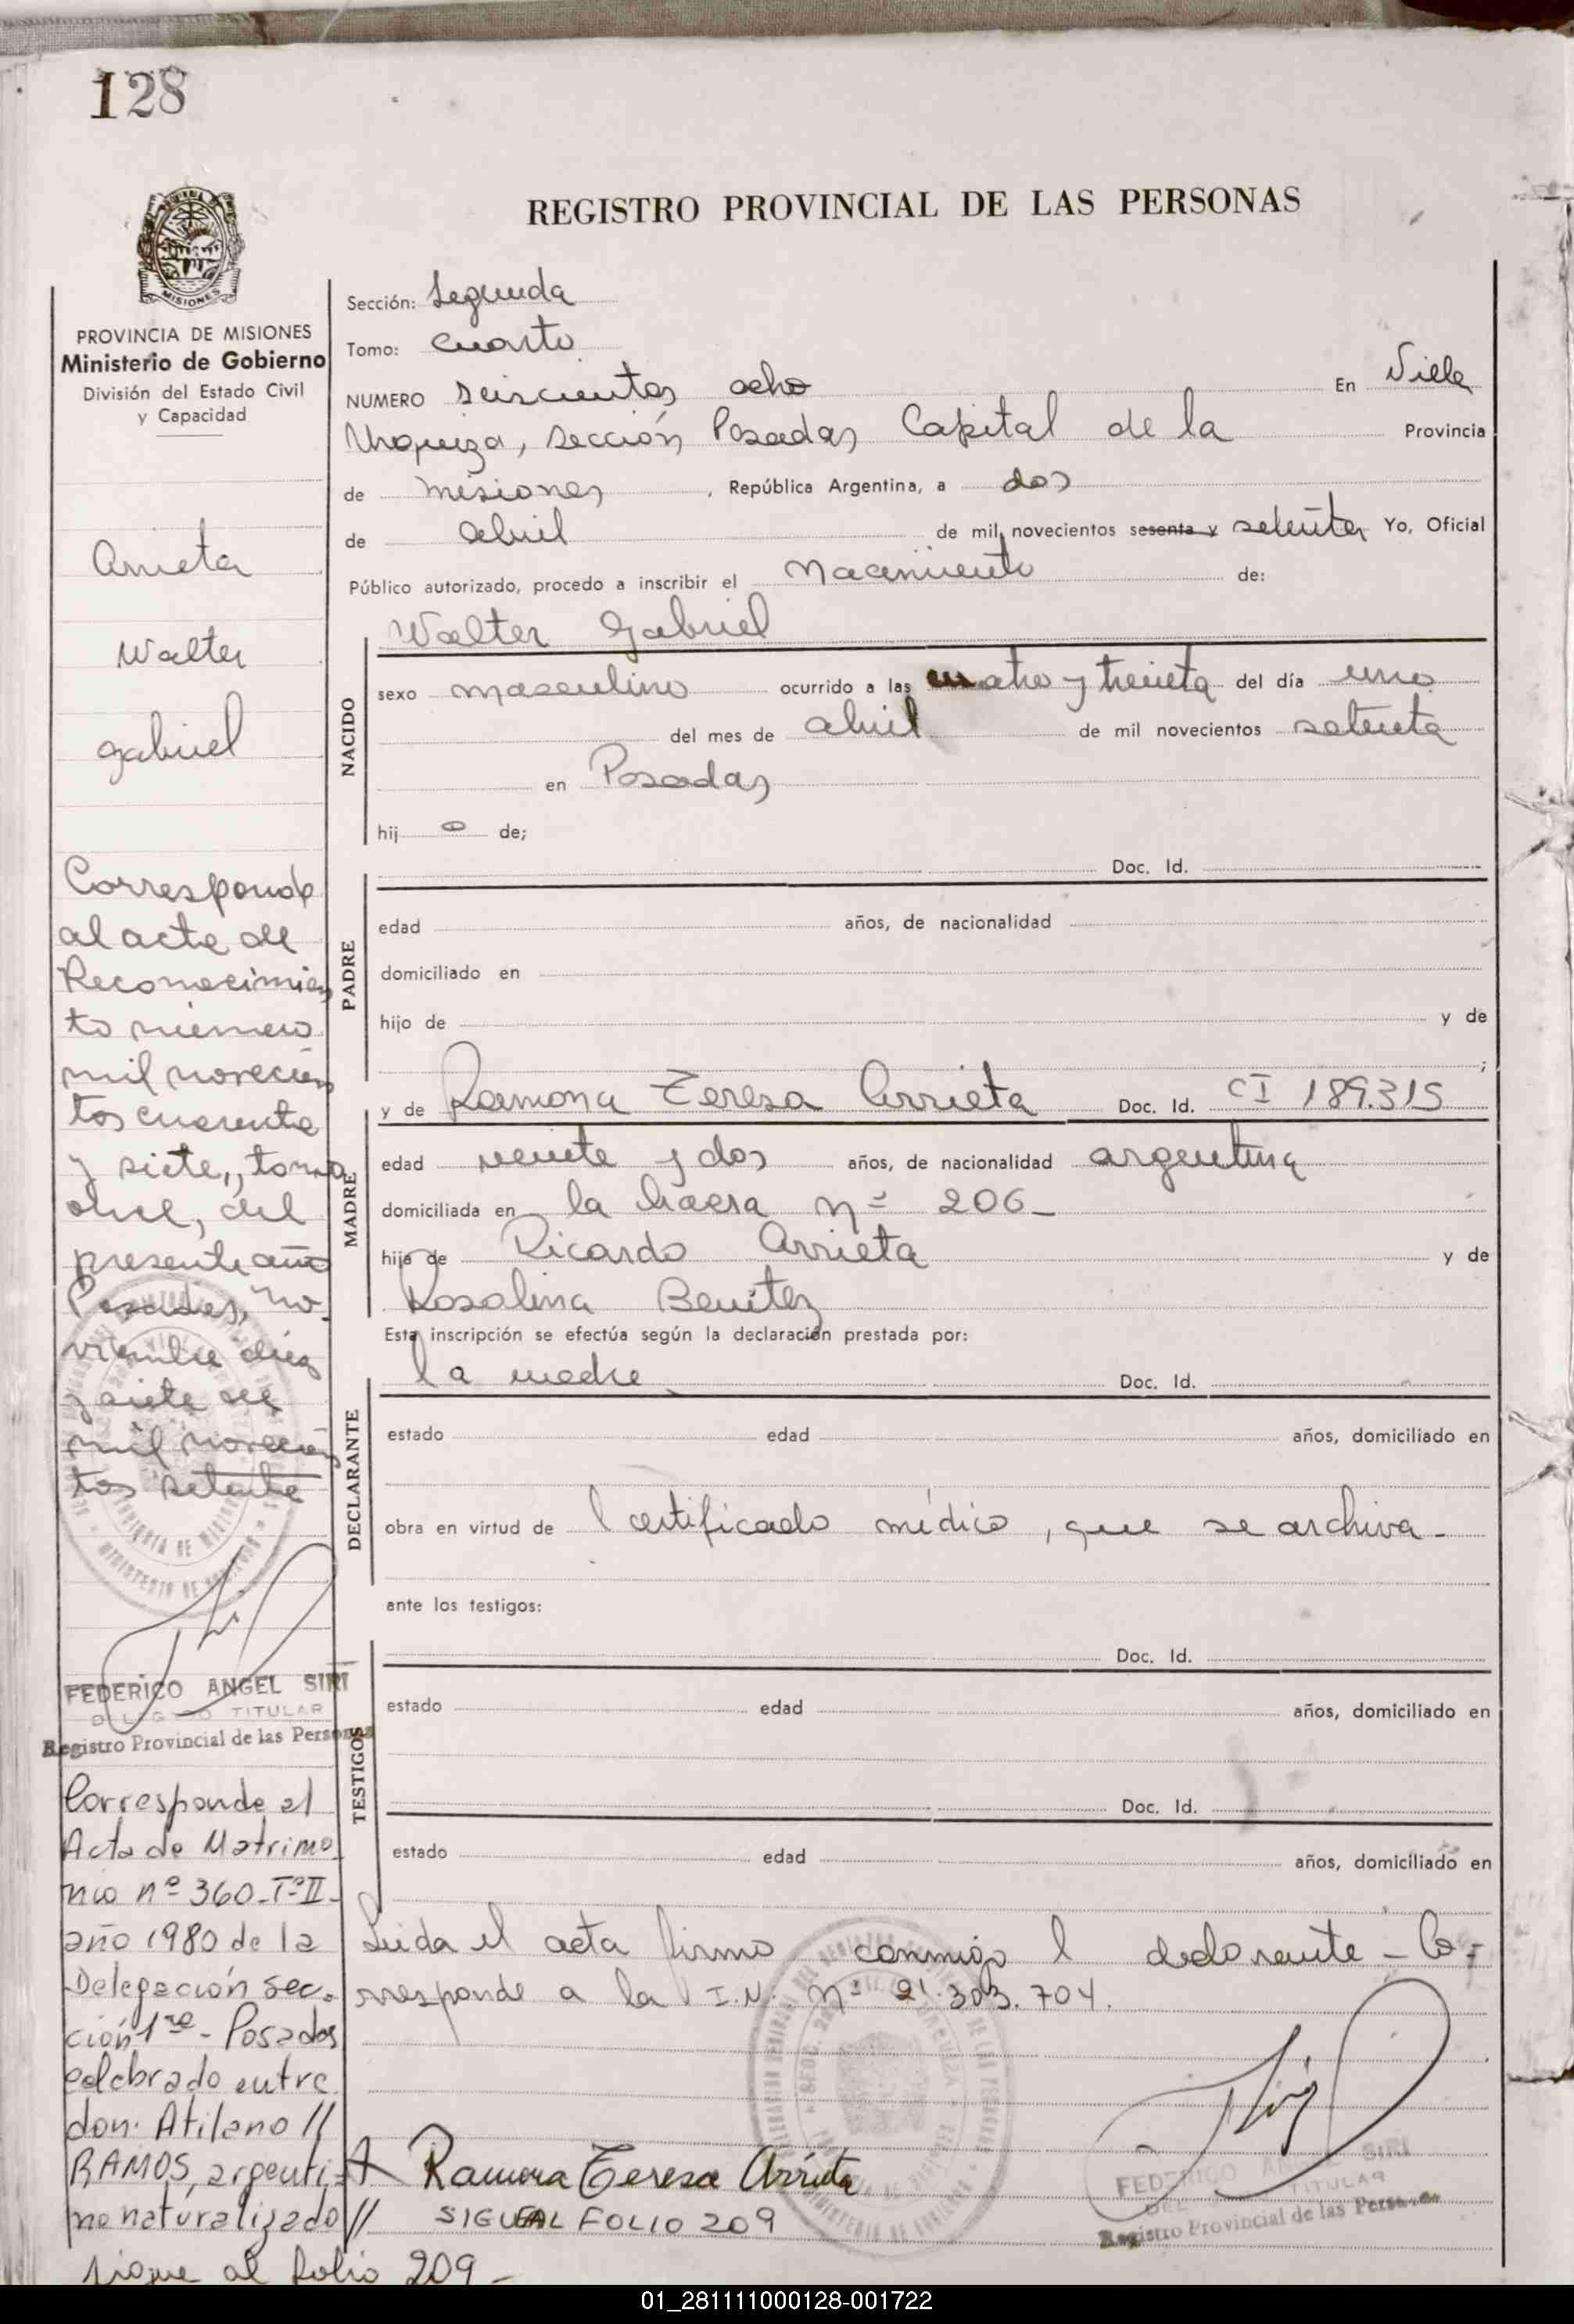 128
REGISTRO PROVINCIAL DE LAS PERSONAS
MISIONES
PROVINCIA DE MISIONES
Ministerio de Gobierno
División del Estado Civil
y Capacidad
Arrieta
Walter
Gabriel
Corresponde
al acta de
Reconocimien
to número
mil novecien
tos cuarenta
y siete, tomo
once, del
presente año
Posadas, no-
viembre diez
y siete de
mil novecien
tos setenta
FEDERICO ANGEL SIRI
DELEGADO TITULAR
Registro Provincial de las Personas
Corresponde al
Acta de Matrimo
nio nº 360-TºII-
año 1980 de la
Delegación sec-
ción 1ra - Posadas
celebrado entre
don Atilano //
RAMOS, argenti-
no naturalizado //
sigue al folio 209-
Sección: Segunda
Tomo: Cuarto
NUMERO seiscientos ocho En Villa
Urquiza, sección Posadas Capital de la Provincia
de Misiones, República Argentina, a dos
de abril de mil novecientos sesenta y setenta Yo, Oficial
Público autorizado, procedo a inscribir el nacimiento de:
Walter Gabriel
NACIDO
sexo masculino ocurrido a las cuatro y treinta del día uno
del mes de abril de mil novecientos setenta
en Posadas
hij o de;
Doc. Id.
PADRE
edad años, de nacionalidad
domiciliado en
hijo de y de
;
y de Ramona Teresa Arrieta Doc. Id. CI 189.315
MADRE
edad veinte y dos años, de nacionalidad argentina
domiciliada en la chacra nº 206-
hija de Ricardo Arrieta y de
Rosalina Benitez
Esta inscripción se efectúa según la declaración prestada por:
la madre Doc. Id.
DECLARANTE
estado edad años, domiciliado en
obra en virtud de l certificado médico, que se archiva-
ante los testigos:
Doc. Id.
TESTIGOS
estado edad años, domiciliado en
Doc. Id.
estado edad años, domiciliado en
Leida el acta firma conmigo l declarante - Co-
rresponde a la I.N. nº 21.303.704.
Ramona Teresa Arrieta
SIGUE AL FOLIO 209
FEDERICO ANGEL SIRI
DEL TITULAR
Registro Provincial de las Personas
01_281111000128-001722